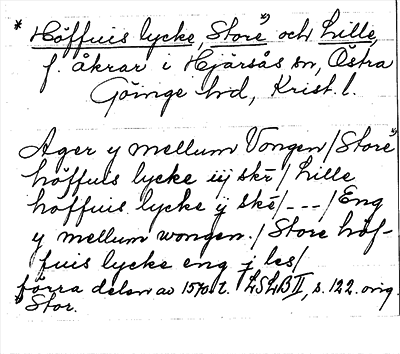 * Höffuis lycke, Store *) och Lille,
f. åkrar i Hjärsås sn, Östra
Göinge hd, Krist. l.
Ager y mellum Vongen / Store *)
höffuis lycke iij skē / Lille
höffuis lycke ij skē / --- / Eng
y mellum wongen / Store höf-
fuis lycke eng j les /
förra delen av 1570-t. LSLB II, s. 122. orig.
* Stor.